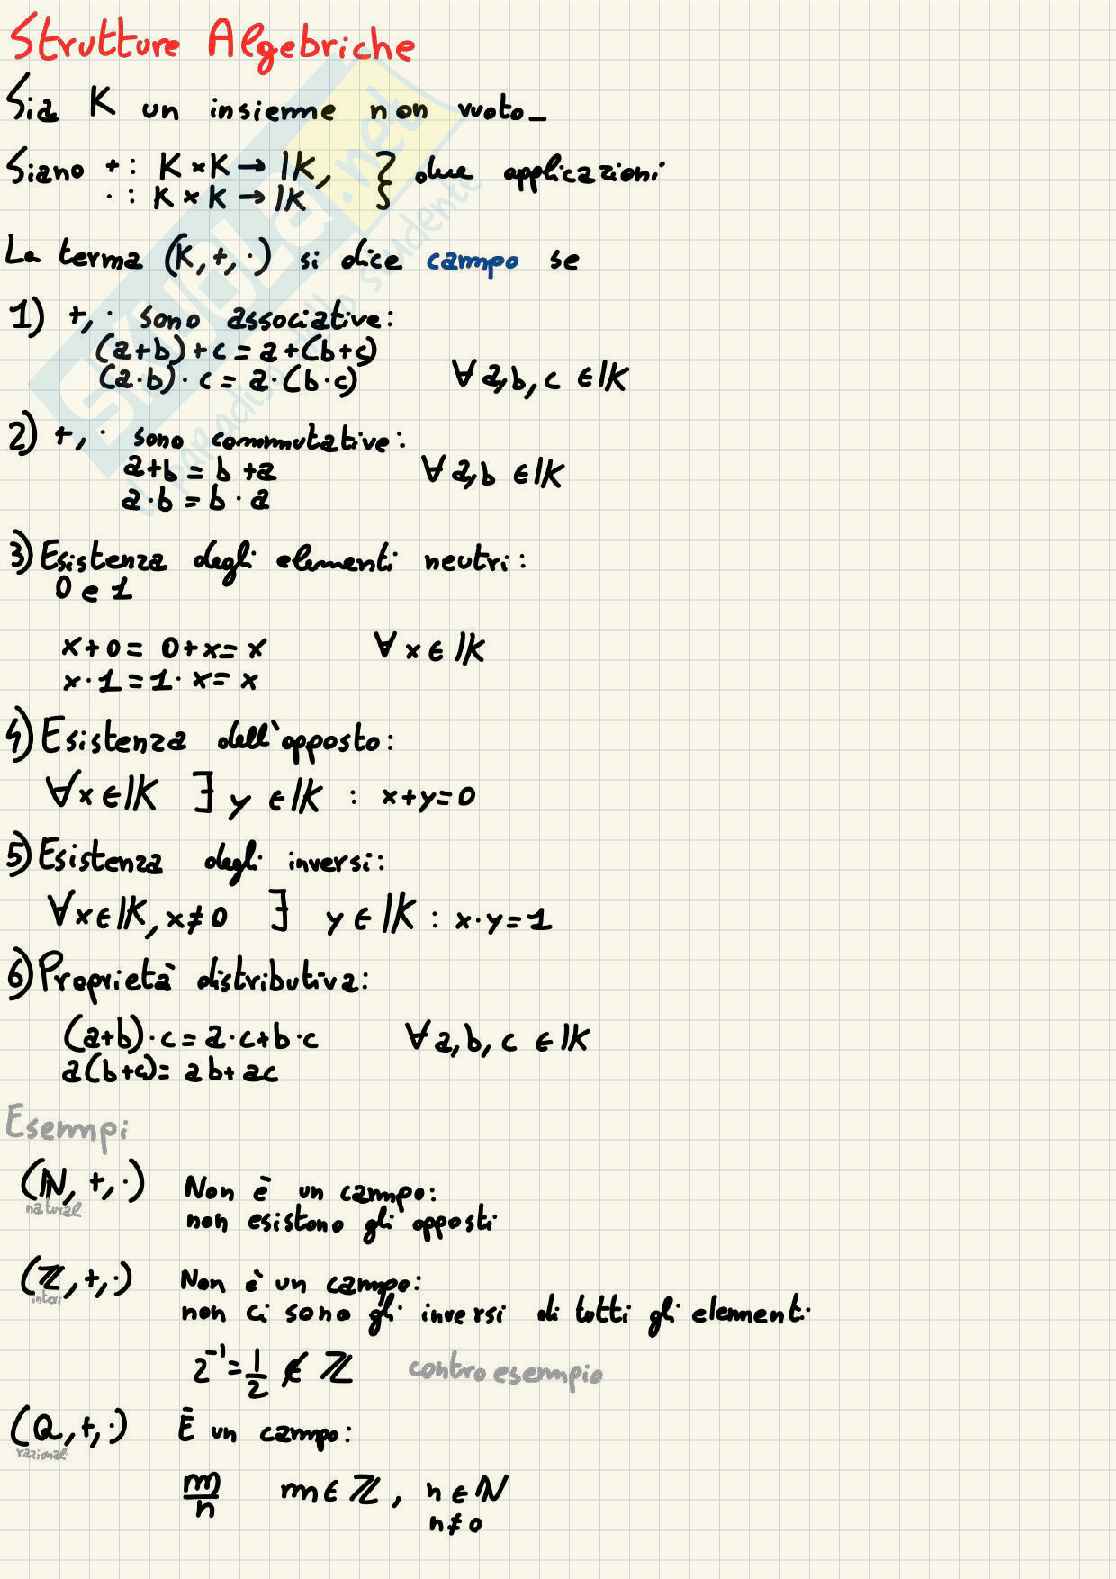 Strutture Algebriche
Sia K un insieme non vuoto_
Siano + : K × K → K, } due applicazioni
· : K × K → K
La terma (K, +, ·) si dice campo se
1) +, · sono associative:
(a+b)+c = a+(b+c)
(a·b)·c = a·(b·c) ∀ a,b,c ∈ K
2) +, · sono commutative:
a+b = b+a ∀ a,b ∈ K
a·b = b·a
3) Esistenza degli elementi neutri:
0 e 1
x+0 = 0+x = x ∀ x ∈ K
x·1 = 1·x = x
4) Esistenza dell'opposto:
∀x ∈ K ∃ y ∈ K : x+y=0
5) Esistenza degli inversi:
∀x ∈ K, x≠0 ∃ y ∈ K : x·y=1
6) Proprietà distributiva:
(a+b)·c = a·c+b·c ∀ a,b,c ∈ K
a(b+c)= ab+ac
Esempi
(N, +, ·) Non è un campo:
naturali non esistono gli opposti
(Z, +, ·) Non è un campo:
interi non ci sono gli inversi di tutti gli elementi
2⁻¹ = 1/2 ∉ Z contro esempio
(Q, +, ·) È un campo:
razionali
m/n m ∈ Z, n ∈ N
n≠0
SKUOLA.net